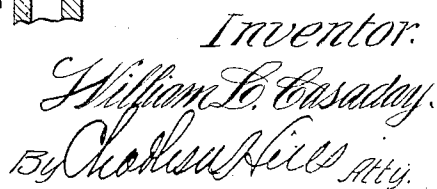 Inventor.
William L. Casaday.
By Charles W Hills Atty.